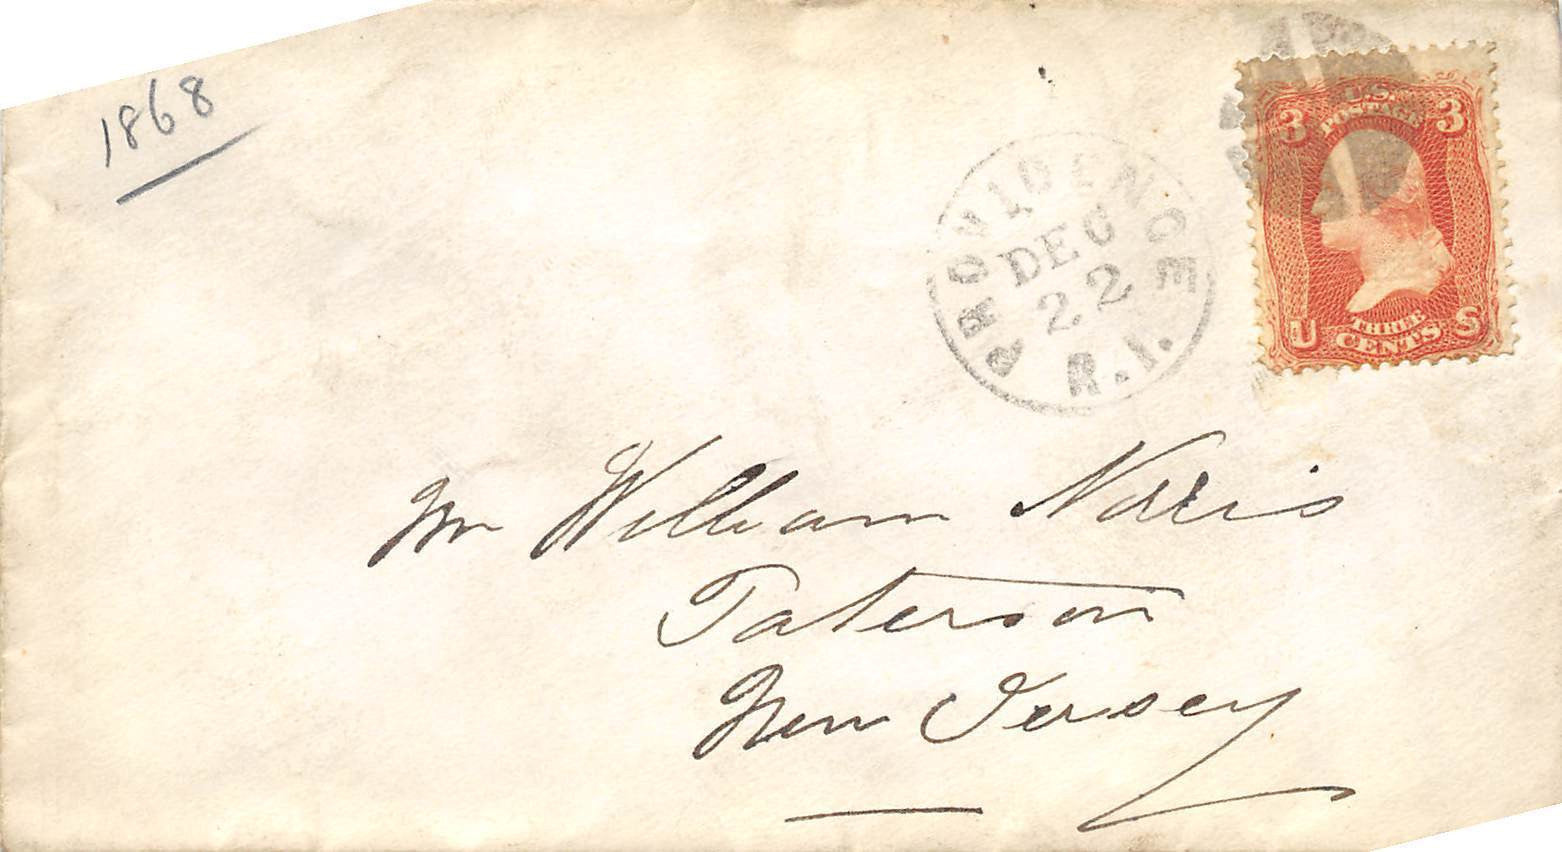 1868
PROVIDENCE
DEC
22
R.I.
U.S.
POSTAGE
3 3
THREE
CENTS
U S
Mr William Norris
Paterson
New Jersey